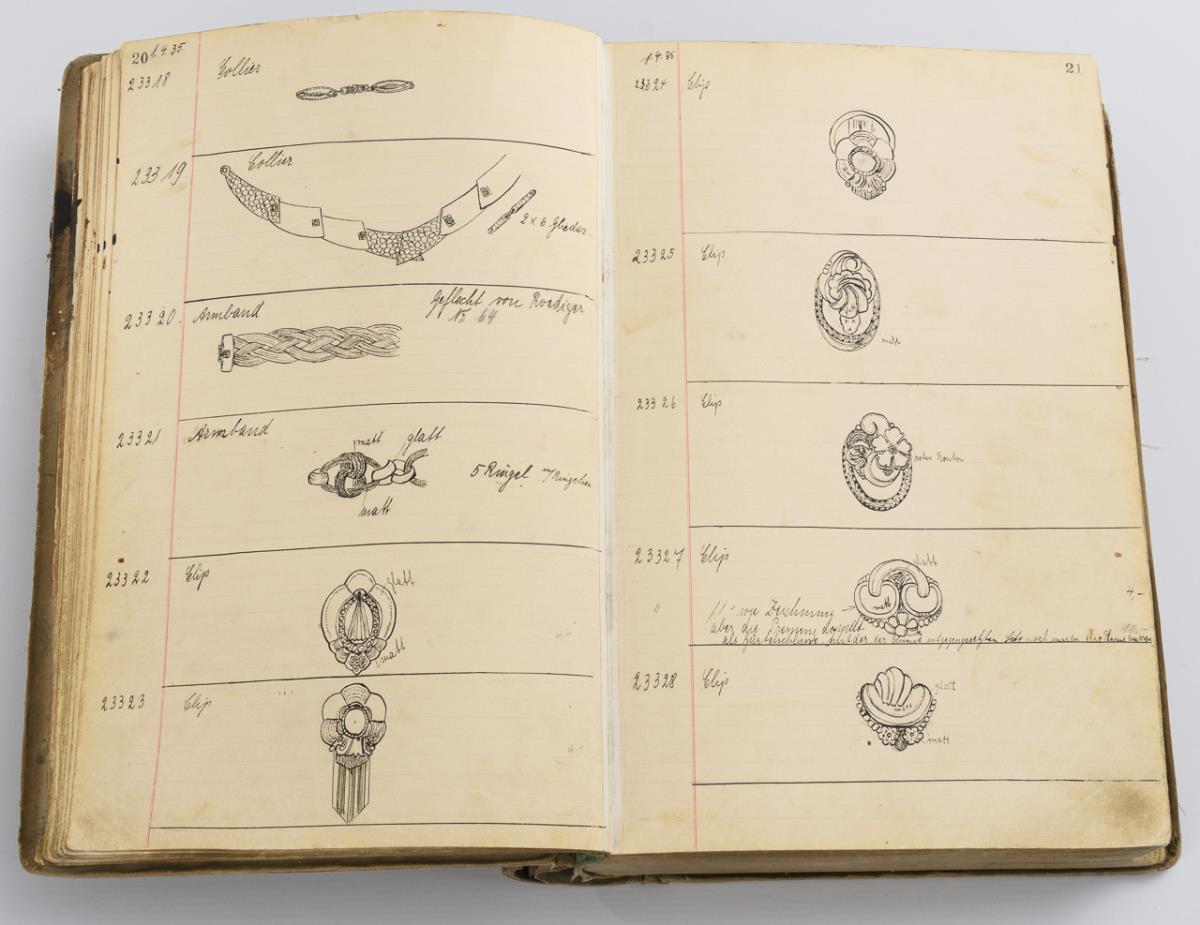 20 1.4.35.
23318 Collier
23319 Collier
2 x 6 Glieder
23320 Armband Geflecht von Roediger
No 64
23321 Armband
matt glatt
5 Ringel
matt
23322 Clip
glatt
matt
23323 Clip
1.4.35 21
23324 Clip
23325 Clip
matt
23326 Clip
23327 Clip
glatt
matt
4,-
" wie Zeichnung
aber die Pressung doppelt
als
23328 Clip
glatt
matt
matt